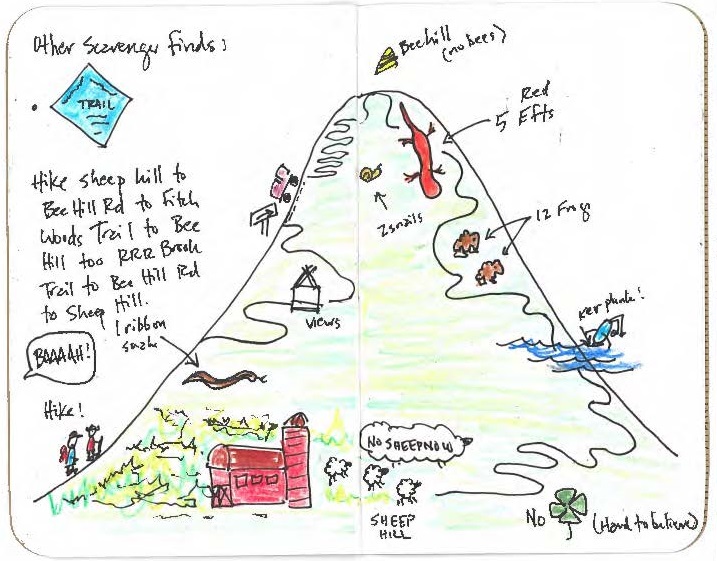 Other Scavenger finds:
TRAIL
Hike sheep hill to
Bee Hill Rd to Fitch
Woods Trail to Bee
Hill too RRR Brook
Trail to Bee Hill Rd
to Sheep Hill.
1 ribbon
snake
BAAAAH!
Hike!
Beehill
(no bees)
Red
5 Efts
2 snails
12 Frogs
views
Kerplunk!
NO SHEEP NOW
SHEEP
HILL
NO
(Hard to believe)